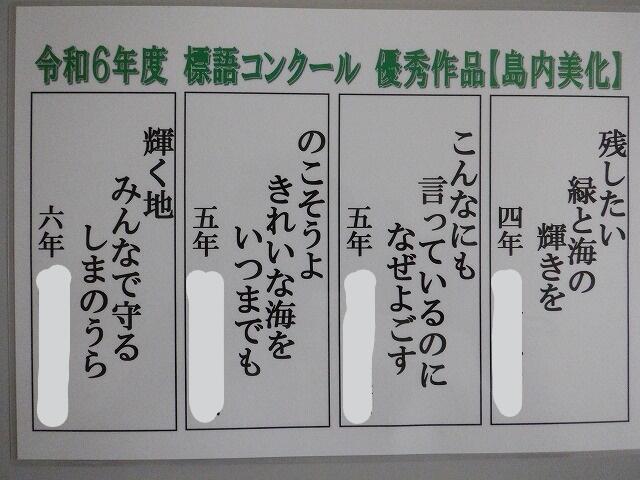 令和6年度 標語コンクール 優秀作品【島内美化】
残したい
緑と海の
輝きを
四年
こんなにも
言っているのに
なぜよごす
五年
のこそうよ
きれいな海を
いつまでも
五年
輝く地
みんなで守る
しまのうら
六年